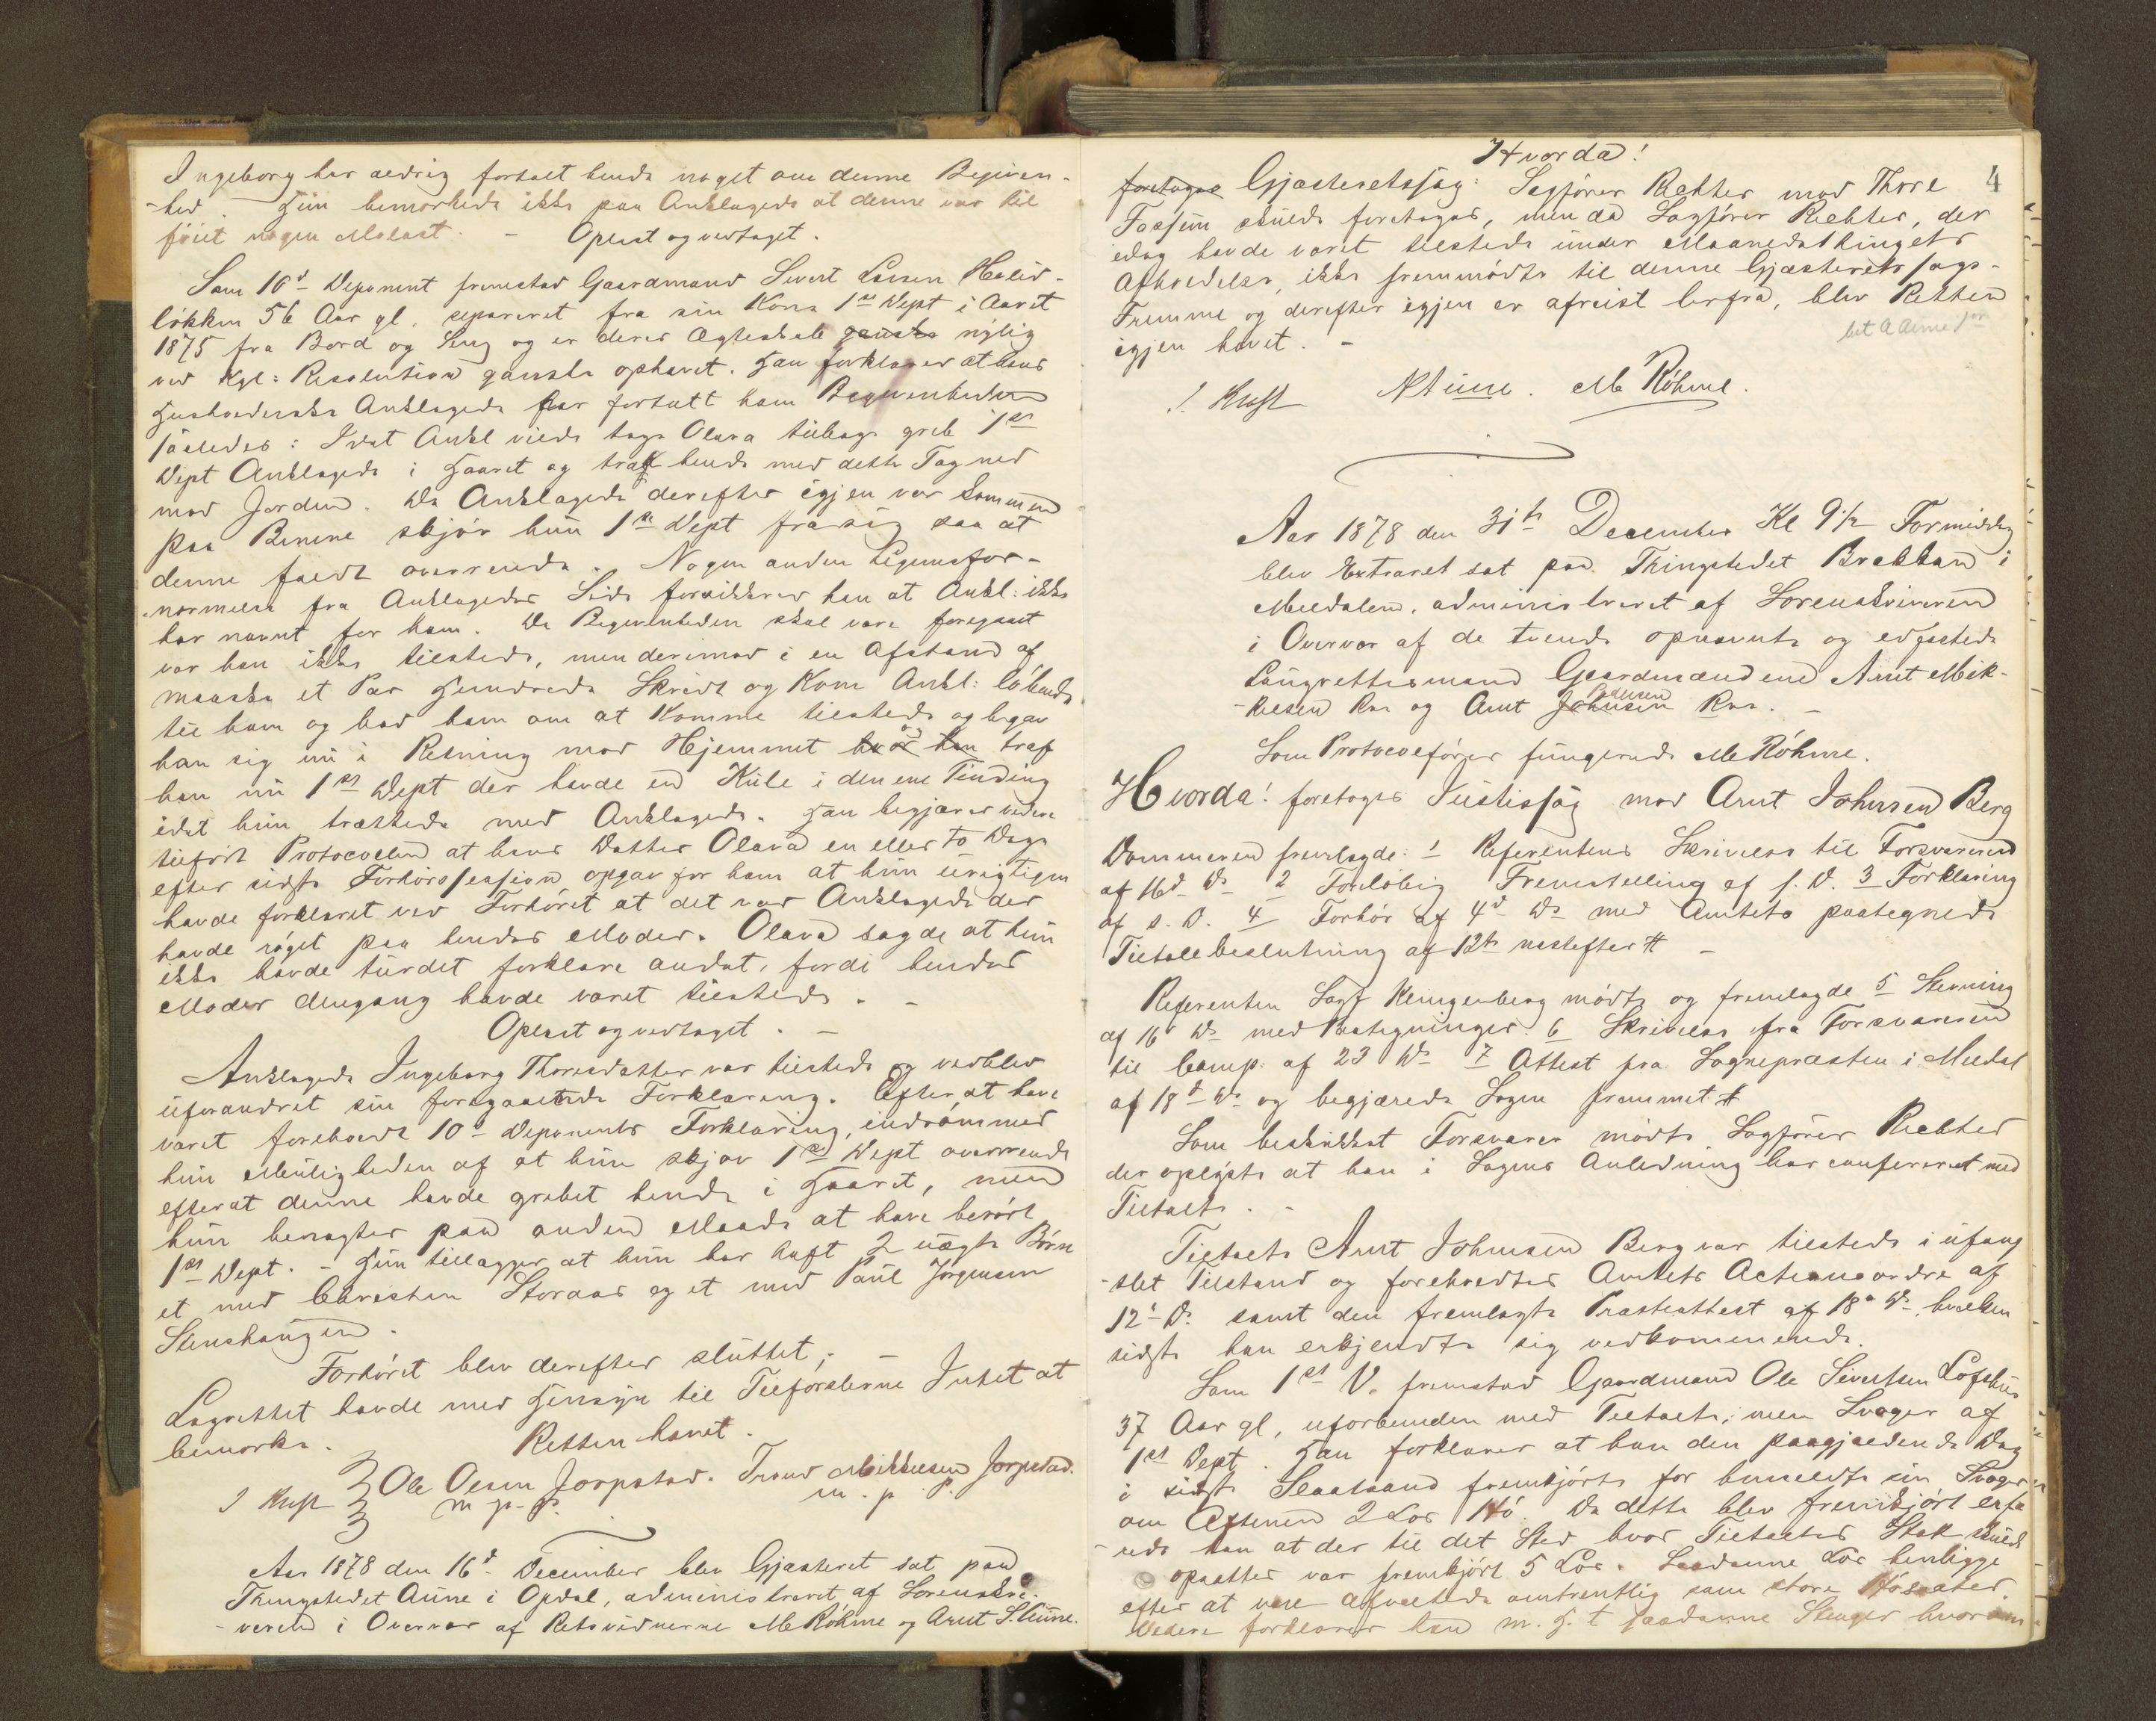 Ingeborg har aldrig fortalt hende noget om denne Begiven-
-hed. Hun bemærkede ikke paa Anklagede at denne var til
føiet nogen Molest. - Oplæst og vedtaget.
Som 10d Deponent fremstod Gaardmand Sivert Larsen Halids-
løkken 56 Aar gl. separeret fra sin Kone 1ste Dept i Aaret
1875 fra Bord og Seng og er deres Ægteskab ganske nylig
ved Kgl: Resolution ganske ophævet. Han forklarer at hans
Husholderske Anklagede har fortalt ham Begivenheden
saaledes: Idet Ankl vilde tage Olava tilbage greb 1ste
Dept Anklagede i Haaret og trak hende med dette Tag ned
mod Jorden. Da Anklagede derefter igjen var kommen
paa Benene skjøv hun 1ste Dept fra sig saa at
denne faldt overende. Nogen anden Legemsfor-
-nærmelse fra Anklagedes Side forsikkrer han at Ankl: ikke
har nævnt for ham. Da Begivenheden skal være foregaaet
var han ikke tilstede, men derimod i en Afstand af
maaske et Par Hundrede Skridt og kom Ankl: løbende
til ham og bad ham om at komme tilstede og begav
han sig nu i Retning mod Hjemmet hvor han og traf
han nu 1ste Dept der havde en Kule i den ene Tinding
idet hun trættede med Anklagede. Han begjærer videre
tilført Protocollen at hans Datter Olava en eller to Dage
efter sidste Forhørssession opgav for ham at hun urigtigen
havde forklaret ved Forhøret at det var Anklagede der
havde røget paa hendes Moder. Olava sagde at hun
ikke havde turdet forklare andet, fordi hendes
Moder dengang havde været tilstede. -
Oplæst og vedtaget. -
Anklagede Ingeborg Thoresdatter var tilstede og vedblev
uforandret sin foregaaende Forklaring. Efter at have
været foreholdt 10d Deponents Forklaring, indrømmed
hun Muligheden af at hun skjøv 1ste Dept overende
efterat denne havde grebet hende i Haaret, men
hun benægter paa anden Maade at have berørt
1ste Dept. - Hun tillægger at hun har havt 2 uægte Børn
et med Christen Storaas og et med Paul Jørgensen
Stenshaugen.
Forhøret blev derefter sluttet; -
Lagrettet havde med Hensyn til Tilførslerne Intet at
bemærke. Retten hævet.
J Kraft Ole Olsen Jorpstad. Trond Mikkelsen Jorpstad.
m. p. P. m. p. P.
Aar 1878 den 16d December blev Gjæsteret sat paa
Thingstedet Aune i Opdal, administreret af Sorenskri-
-veren i Overvær af Retsvidnerne M Røhme og Arnt S. Aune.
4
Hvorda!
foretages Gjæsteretssag: Sagfører Richter mod Thore
Fossum skulde foretages, men da Sagfører Richter, der
idag havde været tilstede under Maanedsthingets
Afholdelse, ikke fremmødte til denne Gjæsteretssags-
Fremme og derefter igjen er afreist herfra, blev Retten
igjen hævet. -
J. Kraft Aune. M Røhme.
Aar 1878 den 31te December Kl 9½ Formiddag
blev Extraret sat paa Thingstedet Brattan i
Meldalen, administreret af Sorenskriveren
i Overvær af de tvende opnævnte og edfæstede
Laugrettesmænd Gaardmændene Arnt Mik-
-kelsen Roe og Arnt Johnsen Pedersen Roe. -
Som Protocolfører fungerede M Røhme.
Hvorda! foretages Justissag mod Arnt Johnsen Berg
Dommeren fremlagde: 1 Referentens Skrivelse til Forsvareren
af 16d Ds 2 Foreløbig Fremstilling af s. D. 3 Forklaring
af s. D. 4 Forhør af 4d Ds med Amtets paategnede
Tiltalebeslutning af 12te næstefter # -
Referenten Sagf Klingenberg mødte og fremlagde 5 Stevning
af 16d Ds med Paategninger. 6 Skrivelse fra Forsvareren
til Comp. af 23 Ds 7 Attest fra Sognepræsten i Meldal
af 18d Ds og begjærede Sagen fremmet #
Som beskikket Forsvarer mødte Sagfører Richter
der oplyste at han i Sagens Anledning har confereret med
Tiltalte. -
Tiltalte Arnt Johnsen Berg var tilstede i ufæng
-slet Tilstand og foreholdtes Amtets Actionsordre af
12te Ds. samt den fremlagte Præsteattest af 18d Ds, hvilken
sidste han erkjendte sig vedkommende.
Som 1ste V. fremstod Gaardmand Ole Sivertsen Lofshus
37 Aar gl, uforbunden med Tiltalte, men Svoger af
1ste Dept. Han forklarer at han den paagjældende Dag
i sidste Slaataand fremkjørte for bemeldte sin Svoger
om Aftenen 2 Læs Hø. Da dette blev fremkjørt erfa
-rede han at der til det Sted hvor Tiltaltes Stak skulde
opsættes var fremkjørt 5 Læs. Saadanne Læs henligge
efter at være afveltede omtrentlig som store Høsaater.
Videre forklarer han m. H. t saadanne Stænger hvorom